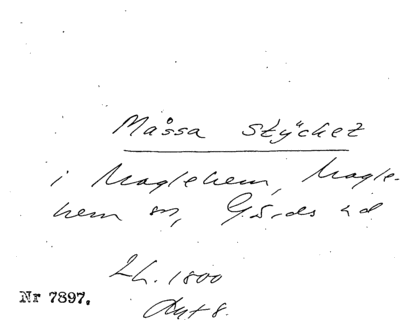 Måssa stycket
i Maglehem, Magle-
hem sn, Gärds hd
Lh. 1800
Akt 8.
Nr 7897.